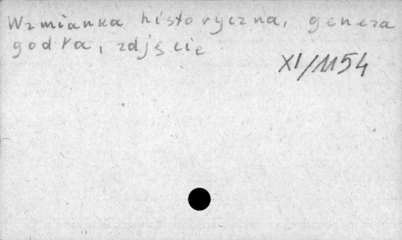 Wzmianka historyczna, geneza
godła, zdjęcie
XI/1154